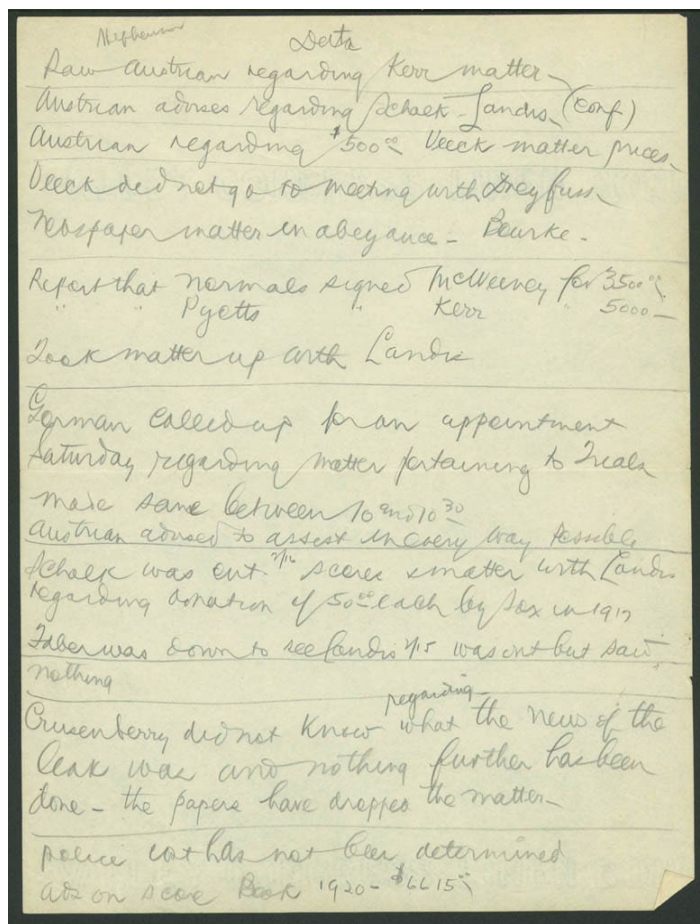 Data
Saw Austrian regarding Kerr matter -
Austrian advises regarding Schalk - Landis (conf)
Austrian regarding $500.00 Veeck matter prices -
Veeck did not go to meeting with Dreyfuss -
Newspaper matter in abeyance - Bourke -
Report that Normals signed McWeeney for 3500.00
" " Pyotts " Kerr " 5000 -
Took matter up with Landis
Gorman called up for an appointment
Saturday regarding matter pertaining to Trials
made same between 10 and 10 30
Austrian advised to assist in every way possible
Schalk was out 2/16 scores matter with Landis
regarding donation of 50.00 each by Sox in 1917
Faber was down to see Landis 2/15 was out but said
nothing
regarding
Crusenberry did not know what the news of the
leak was and nothing further has been
done - the papers have dropped the matter -
police cost has not been determined
ads on Score Book 1920 - $6615.00